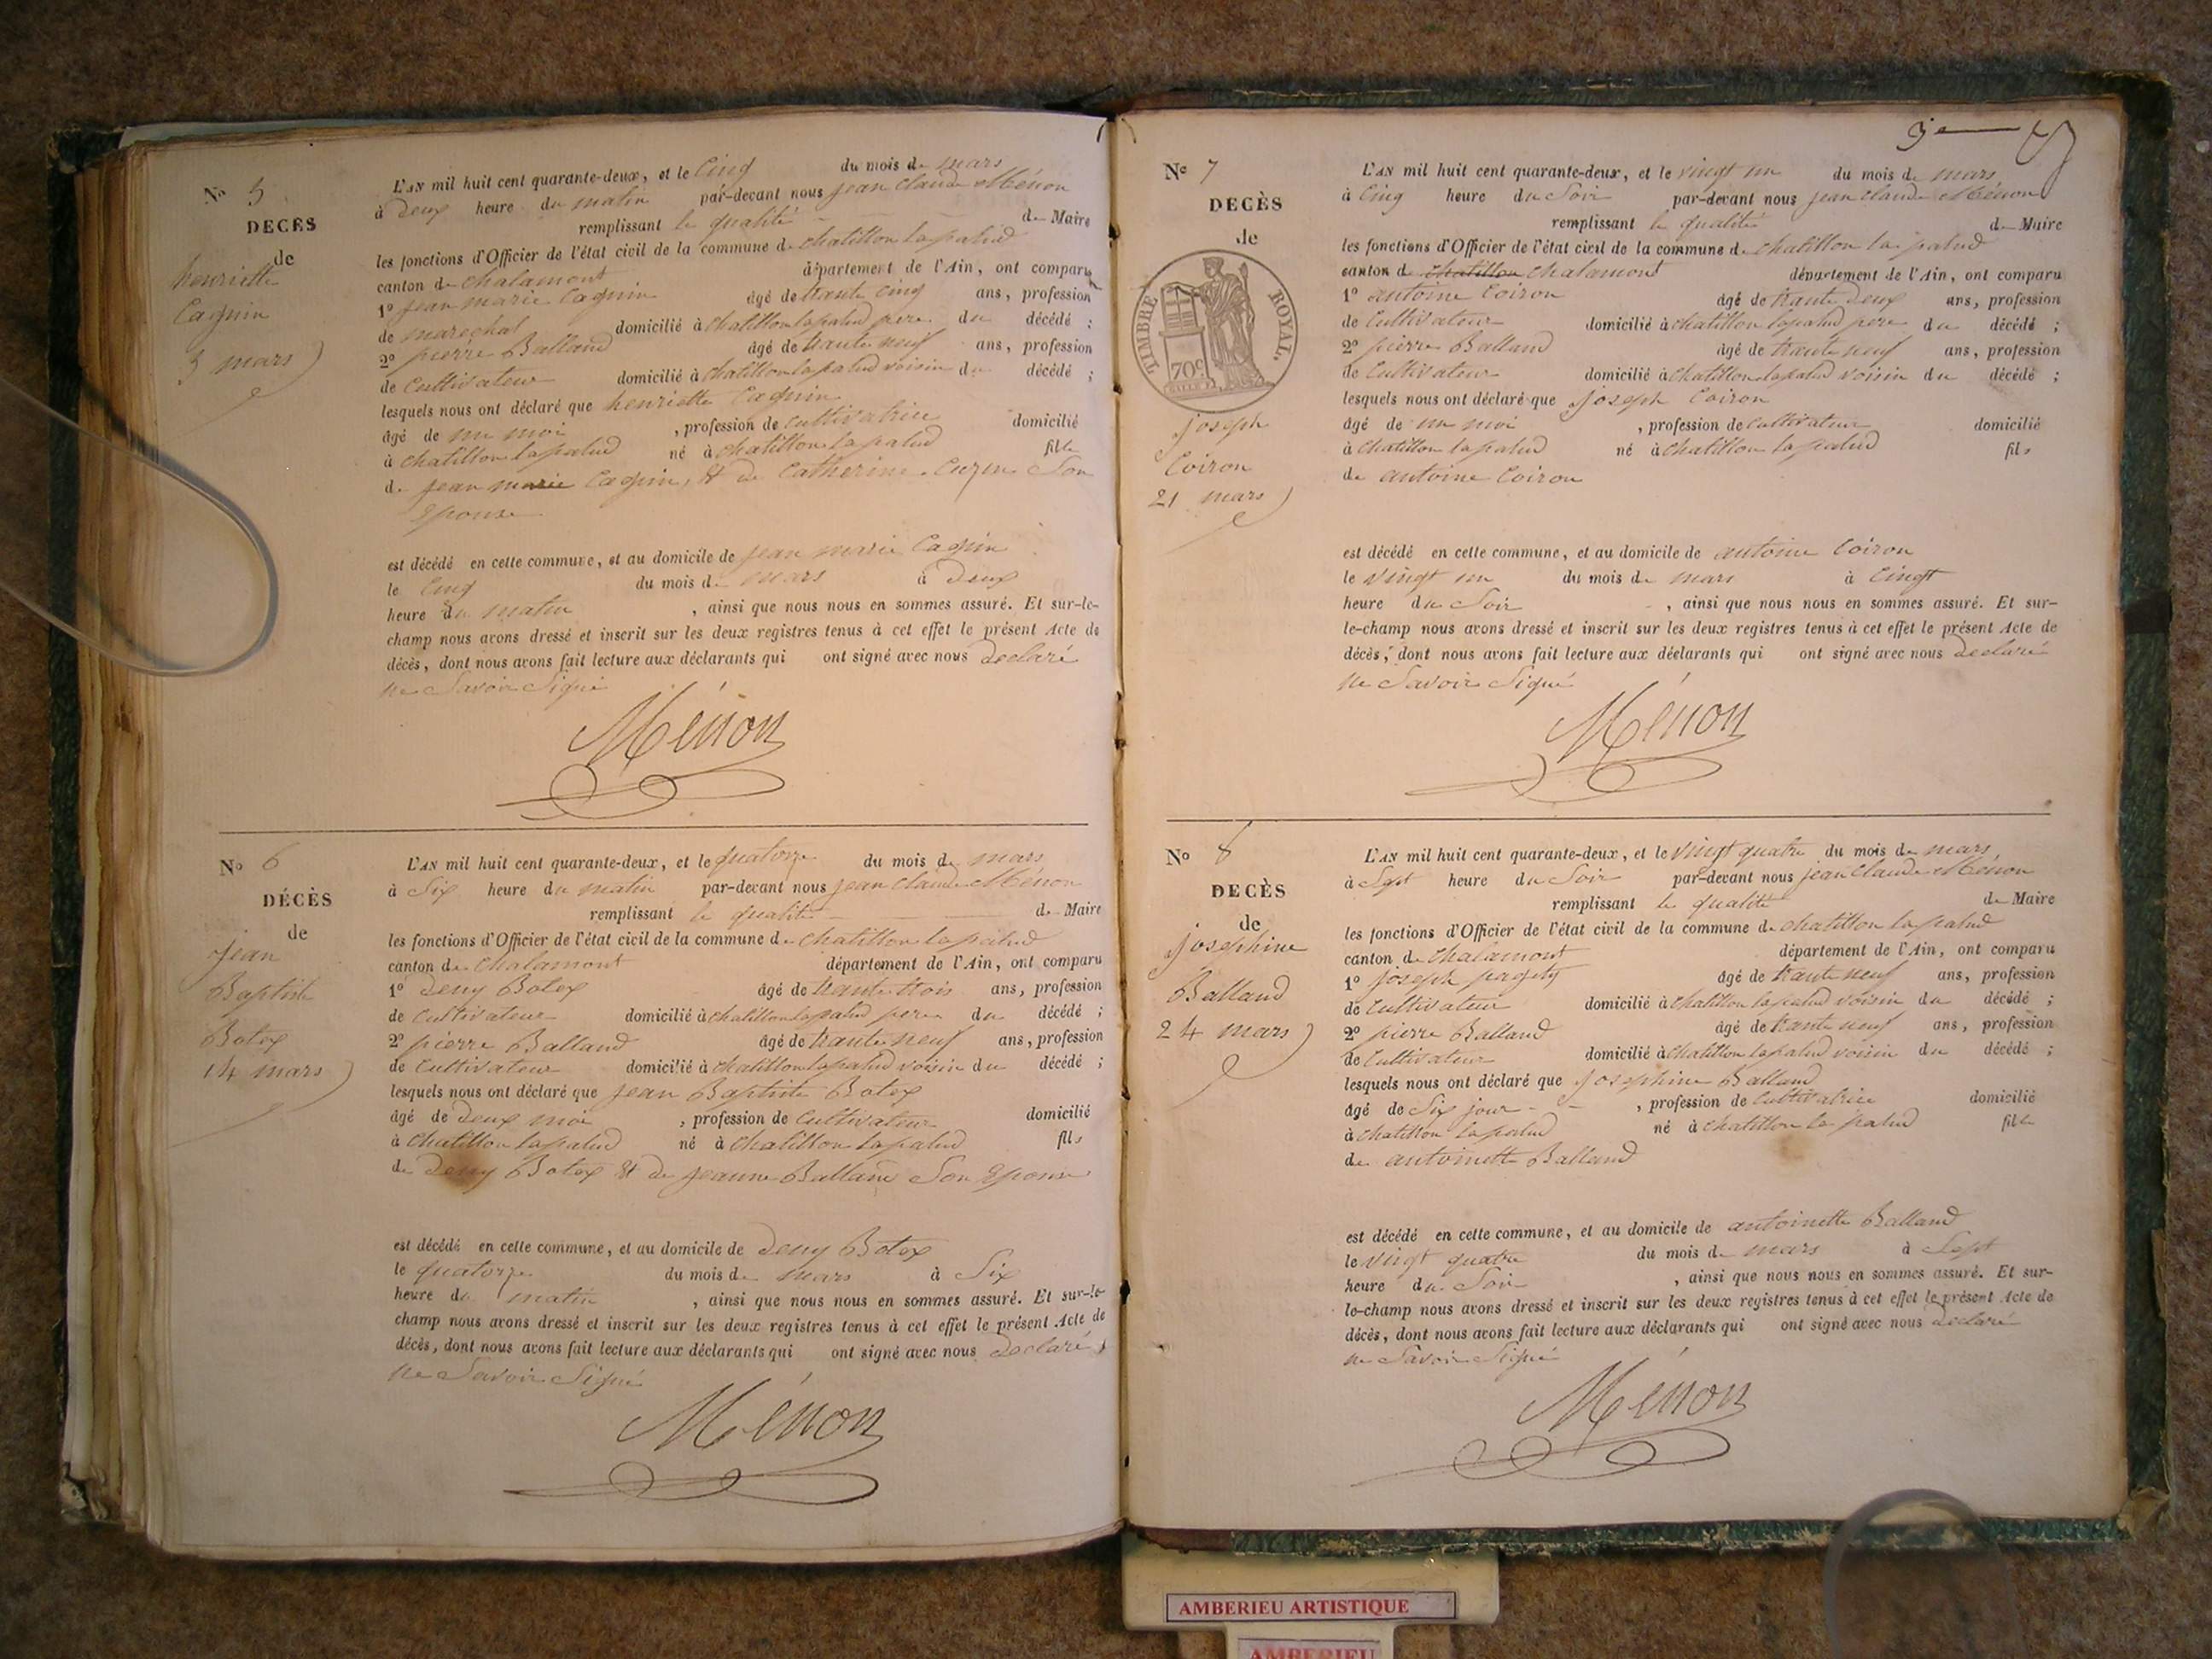 N° 5
DECÈS
de
henriette
Caguin
5 mars
L'AN mil huit cent quarante-deux, et le Cinq du mois de mars
à deux heure du matin par-devant nous jean Claude Ménon
remplissant le qualité de Maire
les fonctions d'Officier de l'état civil de la commune de chatillon la palud
canton de chalamont département de l'Ain, ont comparu
1° jean marie Caguin âgé de trante cinq ans, profession
de marechal domicilié à chatillon lapalud pere du décédé ;
2° pierre Balland âgé de trante neuf ans, profession
de Cultivateur domicilié à chatillon lapalud voisin du décédé ;
lesquels nous ont déclaré que henriette Caguin
âgé de un moi , profession de cultivatrice domicilié
à chatillon lapalud né à chatillon la palud fille
de jean marie Caguin, & de Catherine Son
Epouse
est décédé en cette commune, et au domicile de jean marie Caguin
le Cinq du mois de mars à deux
heure du matin , ainsi que nous nous en sommes assuré. Et sur-le-
champ nous avons dressé et inscrit sur les deux registres tenus à cet effet le présent Acte de
décès, dont nous avons fait lecture aux déclarants qui ont signé avec nous declaré
ne Savoir Signé
Ménon
N° 6
DÉCÈS
de
jean
Baptiste
Botex
14 mars
L'AN mil huit cent quarante-deux, et le quatorze du mois de mars
à Six heure du matin par-devant nous jean Claude Ménon
remplissant le qualité de Maire
les fonctions d'Officier de l'état civil de la commune de chatillon la palud
canton de chalamont département de l'Ain, ont comparu
1° Deny Botex âgé de trante trois ans, profession
de cultivateur domicilié à chatillon lapalud pere du décédé ;
2° pierre Balland âgé de trante neuf ans, profession
de Cultivateur domicilié à chatillon lapalud voisin du décédé ;
lesquels nous ont déclaré que jean Baptiste Botex
âgé de deux moi , profession de cultivateur domicilié
à chatillon lapalud né à chatillon lapalud fils
de Deny Botex & de jeanne Balland Son Epouse
est décédé en cette commune, et au domicile de Deny Botex
le quatorze du mois de mars à Six
heure du matin , ainsi que nous nous en sommes assuré. Et sur-le-
champ nous avons dressé et inscrit sur les deux registres tenus à cet effet le présent Acte de
décès, dont nous avons fait lecture aux déclarants qui ont signé avec nous declaré
ne Savoir Signé
Ménon
N° 7
DECÈS
de
TIMBRE ROYAL.
70c
joseph
Coiron
21 mars
L'AN mil huit cent quarante-deux, et le vingt un du mois de mars
à Cinq heure du Soir par-devant nous jean Claude Ménon
remplissant le qualité de Maire
les fonctions d'Officier de l'état civil de la commune de chatillon la palud
canton de chatillon chalamont département de l'Ain, ont comparu
1° antoine Coiron âgé de trante deux ans, profession
de Cultivateur domicilié à chatillon lapalud pere du décédé ;
2° pierre Balland âgé de trante neuf ans, profession
de Cultivateur domicilié à chatillon lapalud voisin du décédé ;
lesquels nous ont déclaré que joseph Coiron
âgé de un moi , profession de cultivateur domicilié
à chatillon la palud né à chatillon la palud fils
de antoine Coiron
est décédé en cette commune, et au domicile de antoine Coiron
le vingt un du mois de mars à Cingt
heure du Soir , ainsi que nous nous en sommes assuré. Et sur-
le-champ nous avons dressé et inscrit sur les deux registres tenus à cet effet le présent Acte de
décès, dont nous avons fait lecture aux déclarants qui ont signé avec nous declaré
ne Savoir Signé
Ménon
N° 8
DECÈS
de
josephine
Balland
24 mars
L'AN mil huit cent quarante-deux, et le vingt quatre du mois de mars
à Sept heure du Soir par-devant nous jean Claude Ménon
remplissant le qualité de Maire
les fonctions d'Officier de l'état civil de la commune de chatillon la palud
canton de chalamont département de l'Ain, ont comparu
1° joseph âgé de trante neuf ans, profession
de Cultivateur domicilié à chatillon lapalud voisin du décédé ;
2° pierre Balland âgé de trante neuf ans, profession
de Cultivateur domicilié à chatillon lapalud voisin du décédé ;
lesquels nous ont déclaré que josephine Balland
âgé de Six jour , profession de cultivatrice domicilié
à chatillon la palud né à chatillon la palud fille
de antoinette Balland
est décédé en cette commune, et au domicile de antoinette Balland
le vingt quatre du mois de mars à Sept
heure du Soir , ainsi que nous nous en sommes assuré. Et sur-
le-champ nous avons dressé et inscrit sur les deux registres tenus à cet effet le présent Acte de
décès, dont nous avons fait lecture aux déclarants qui ont signé avec nous declaré
ne Savoir Signé
Ménon
AMBERIEU ARTISTIQUE
AMBERIEU